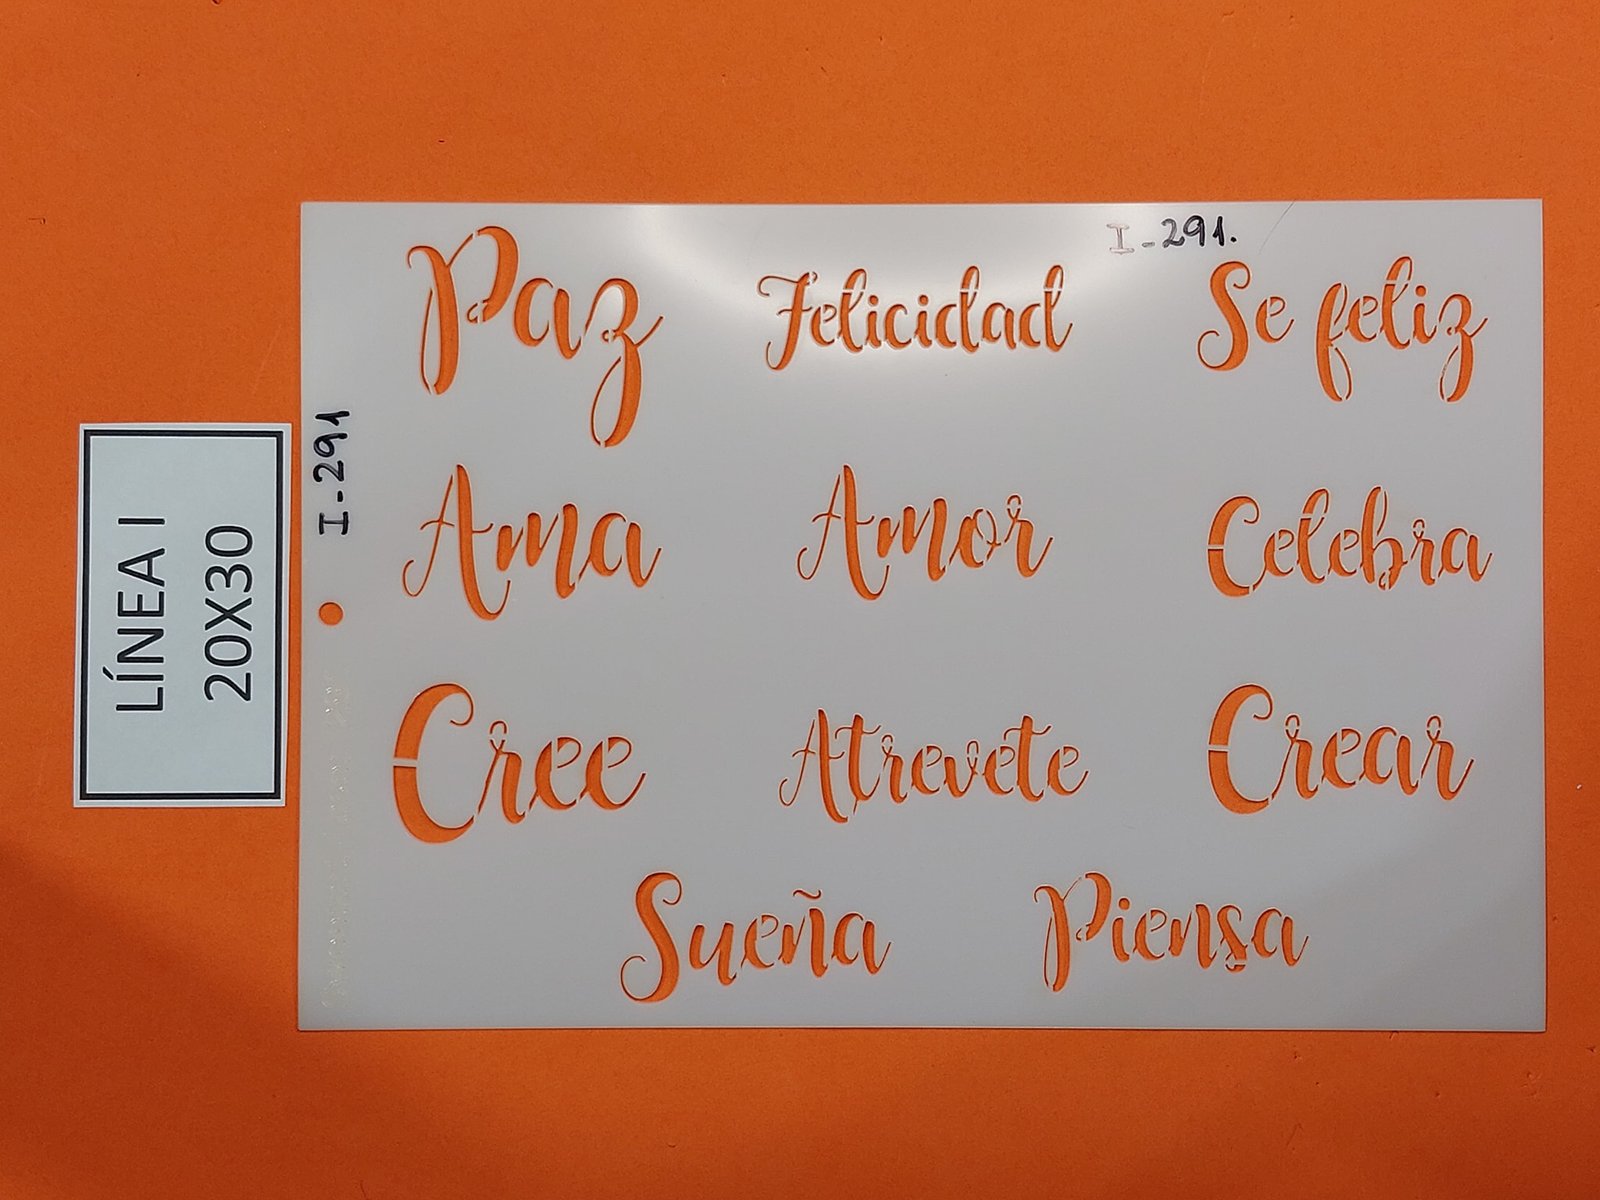 I-291.
Paz Felicidad Se feliz
I-291
Ama Amor Celebra
LÍNEA I
20X30
Cree Atrevete Crear
Sueña Piensa